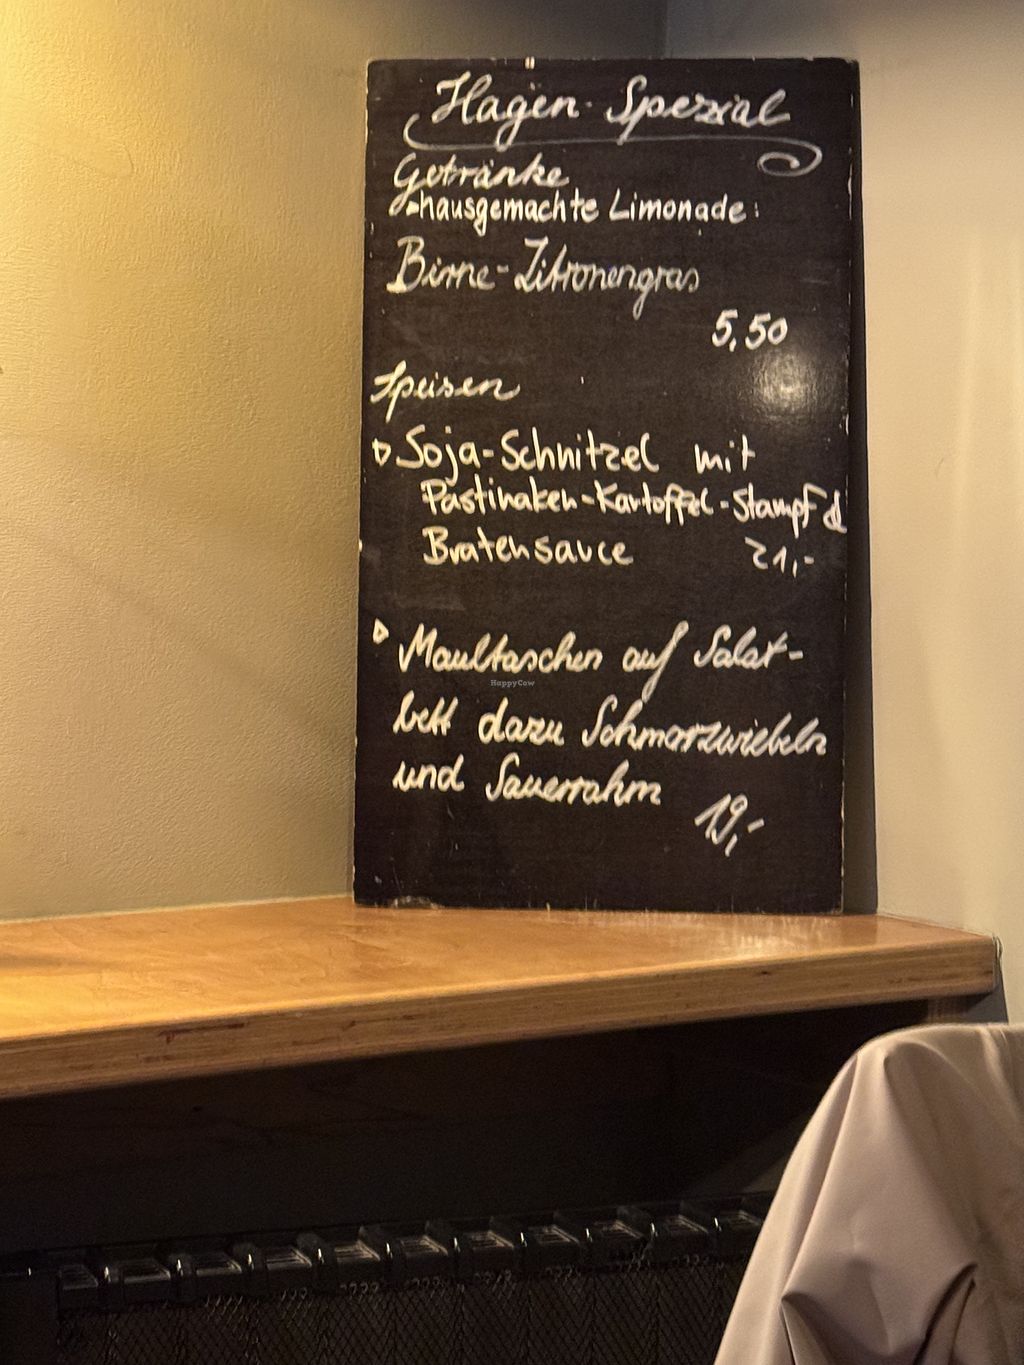 Hagen-Spezial
Getränke
hausgemachte Limonade:
Birne-Zitronengras
5,50
Speisen
Soja-Schnitzel mit
Pastinaken-Kartoffel-Stampf &
Bratensauce 21,-
Maultaschen auf Salat-
bett dazu Schmorzwiebeln
und Sauerrahm
19,-
HappyCow